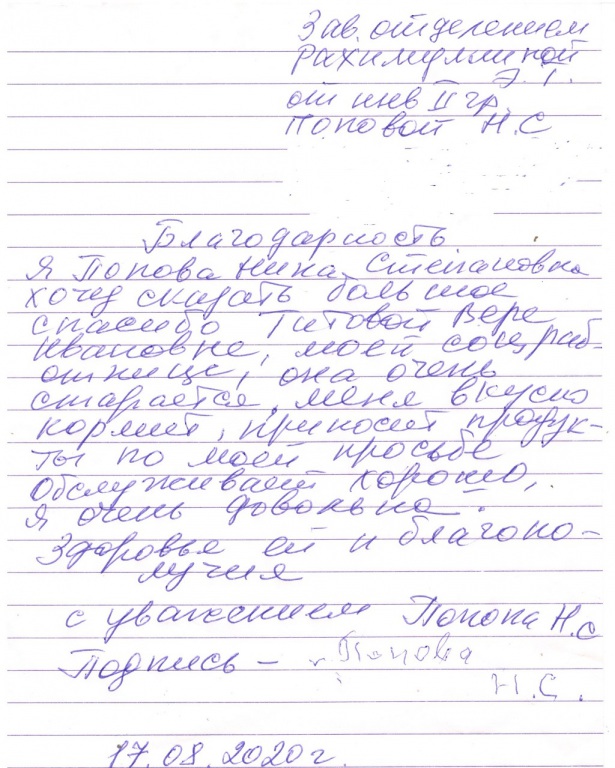 Зав. отделением
Рахимуллиной
Э. Г.
от инв II гр.
Поповой Н.С
Благодарность
Я Попова Нина Степановна
хочу сказать большое
спасибо Титовой Вере
Ивановне, моей соц.раб-
отнице, она очень
старается, меня вкусно
кормит, приносит продук-
ты по моей просьбе
обслуживает хорошо,
я очень довольна!
Здоровья ей и благопо-
лучия
с уважением Попова Н.С
Подпись – Попова
Н.С.
17.08.2020г.